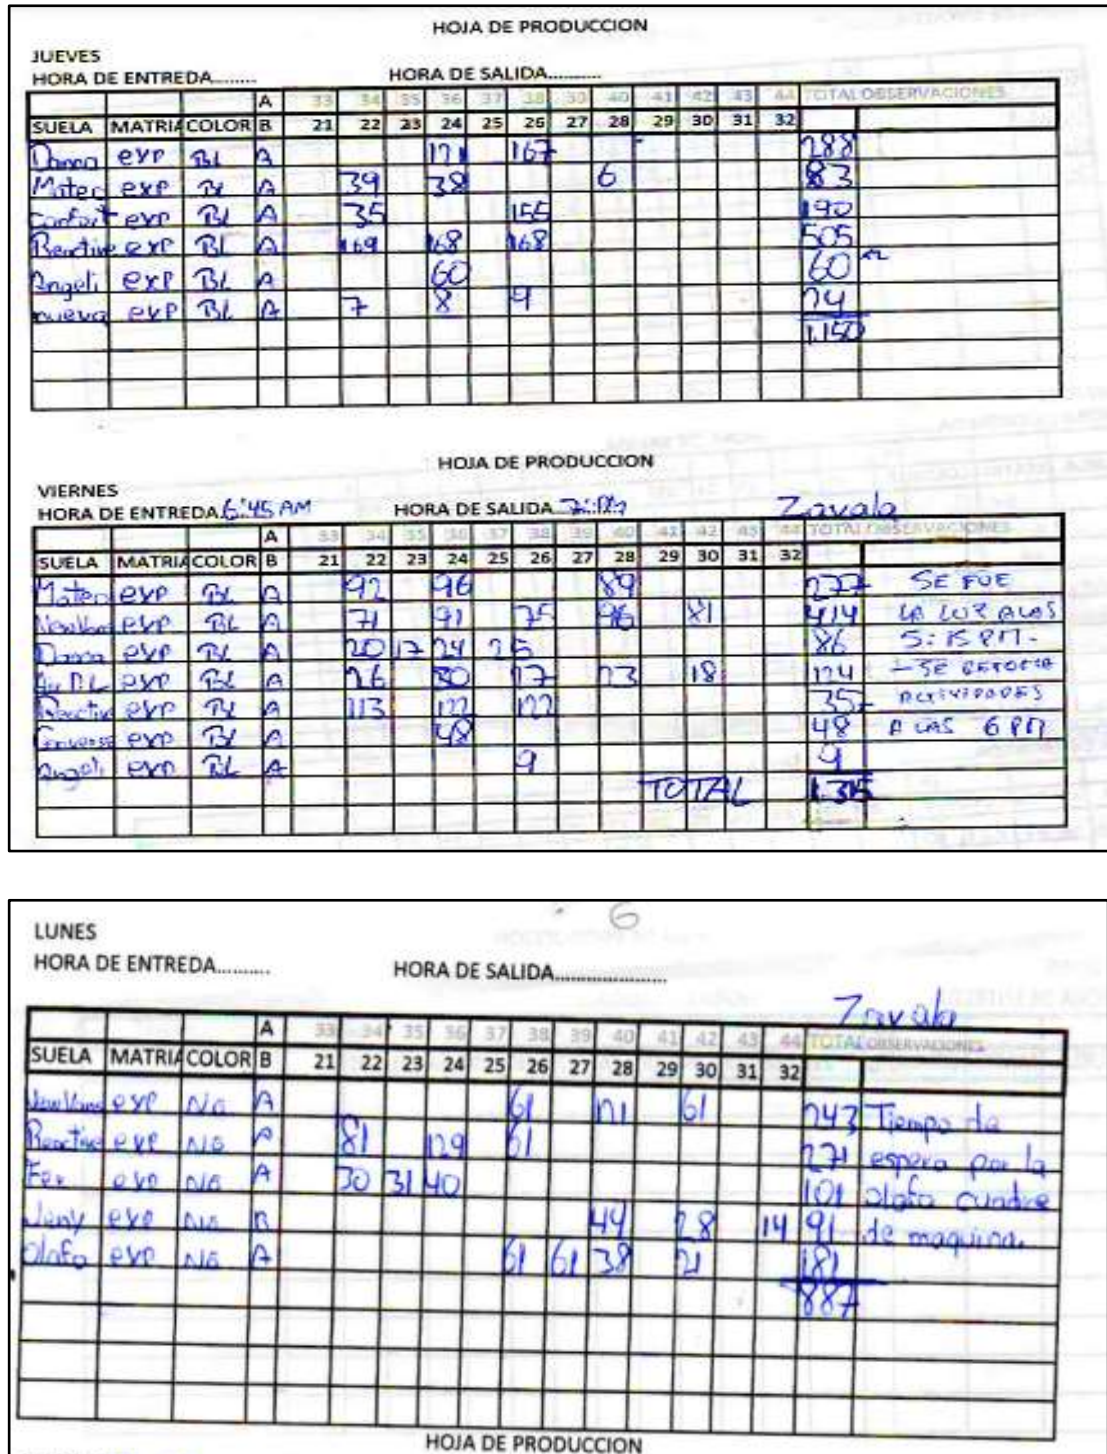 HOJA DE PRODUCCION
JUEVES
HORA DE ENTREDA........ HORA DE SALIDA...........
A 33 34 35 36 37 38 39 40 41 42 43 44 TOTAL OBSERVACIONES
SUELA MATRIA COLOR B 21 22 23 24 25 26 27 28 29 30 31 32
Danna exp BL A 121 167 288
Mateo exp BL A 39 38 6 83
Confort exp BL A 35 155 190
Reactive exp BL A 169 168 168 505
Angeli exp BL A 60 60
nueva exp BL A 7 8 9 24
1.150
HOJA DE PRODUCCION
VIERNES
HORA DE ENTREDA. 6:45 AM HORA DE SALIDA 7: PM Zavala
A 33 34 35 36 37 38 39 40 41 42 43 44 TOTAL OBSERVACIONES
SUELA MATRIA COLOR B 21 22 23 24 25 26 27 28 29 30 31 32
Mateo exp BL A 92 96 89 277 SE FUE
exp BL A 71 91 75 96 81 414 LA LUZ A LAS
Danna exp BL A 20 17 24 25 86 5:15 PM.
exp BL A 26 30 27 23 18 124 - SE RETOMA
Reactive exp BL A 113 122 122 357 ACTIVIDADES
Converse exp BL A 48 48 A LAS 6 PM
Angeli exp BL A 9 9
TOTAL 1.315
6
LUNES
HORA DE ENTREDA.......... HORA DE SALIDA......................
Zavala
A 33 34 35 36 37 38 39 40 41 42 43 44 TOTAL OBSERVACIONES
SUELA MATRIA COLOR B 21 22 23 24 25 26 27 28 29 30 31 32
exp NG A 61 121 61 243 Tiempo de
Reactive exp NG A 81 129 61 271 espera por la
Fer exp NG A 30 31 40 101 olafo cuadre
Jeny exp NG B 49 28 14 91 de maquina.
Olafo exp NG A 61 61 38 21 181
887
HOJA DE PRODUCCION